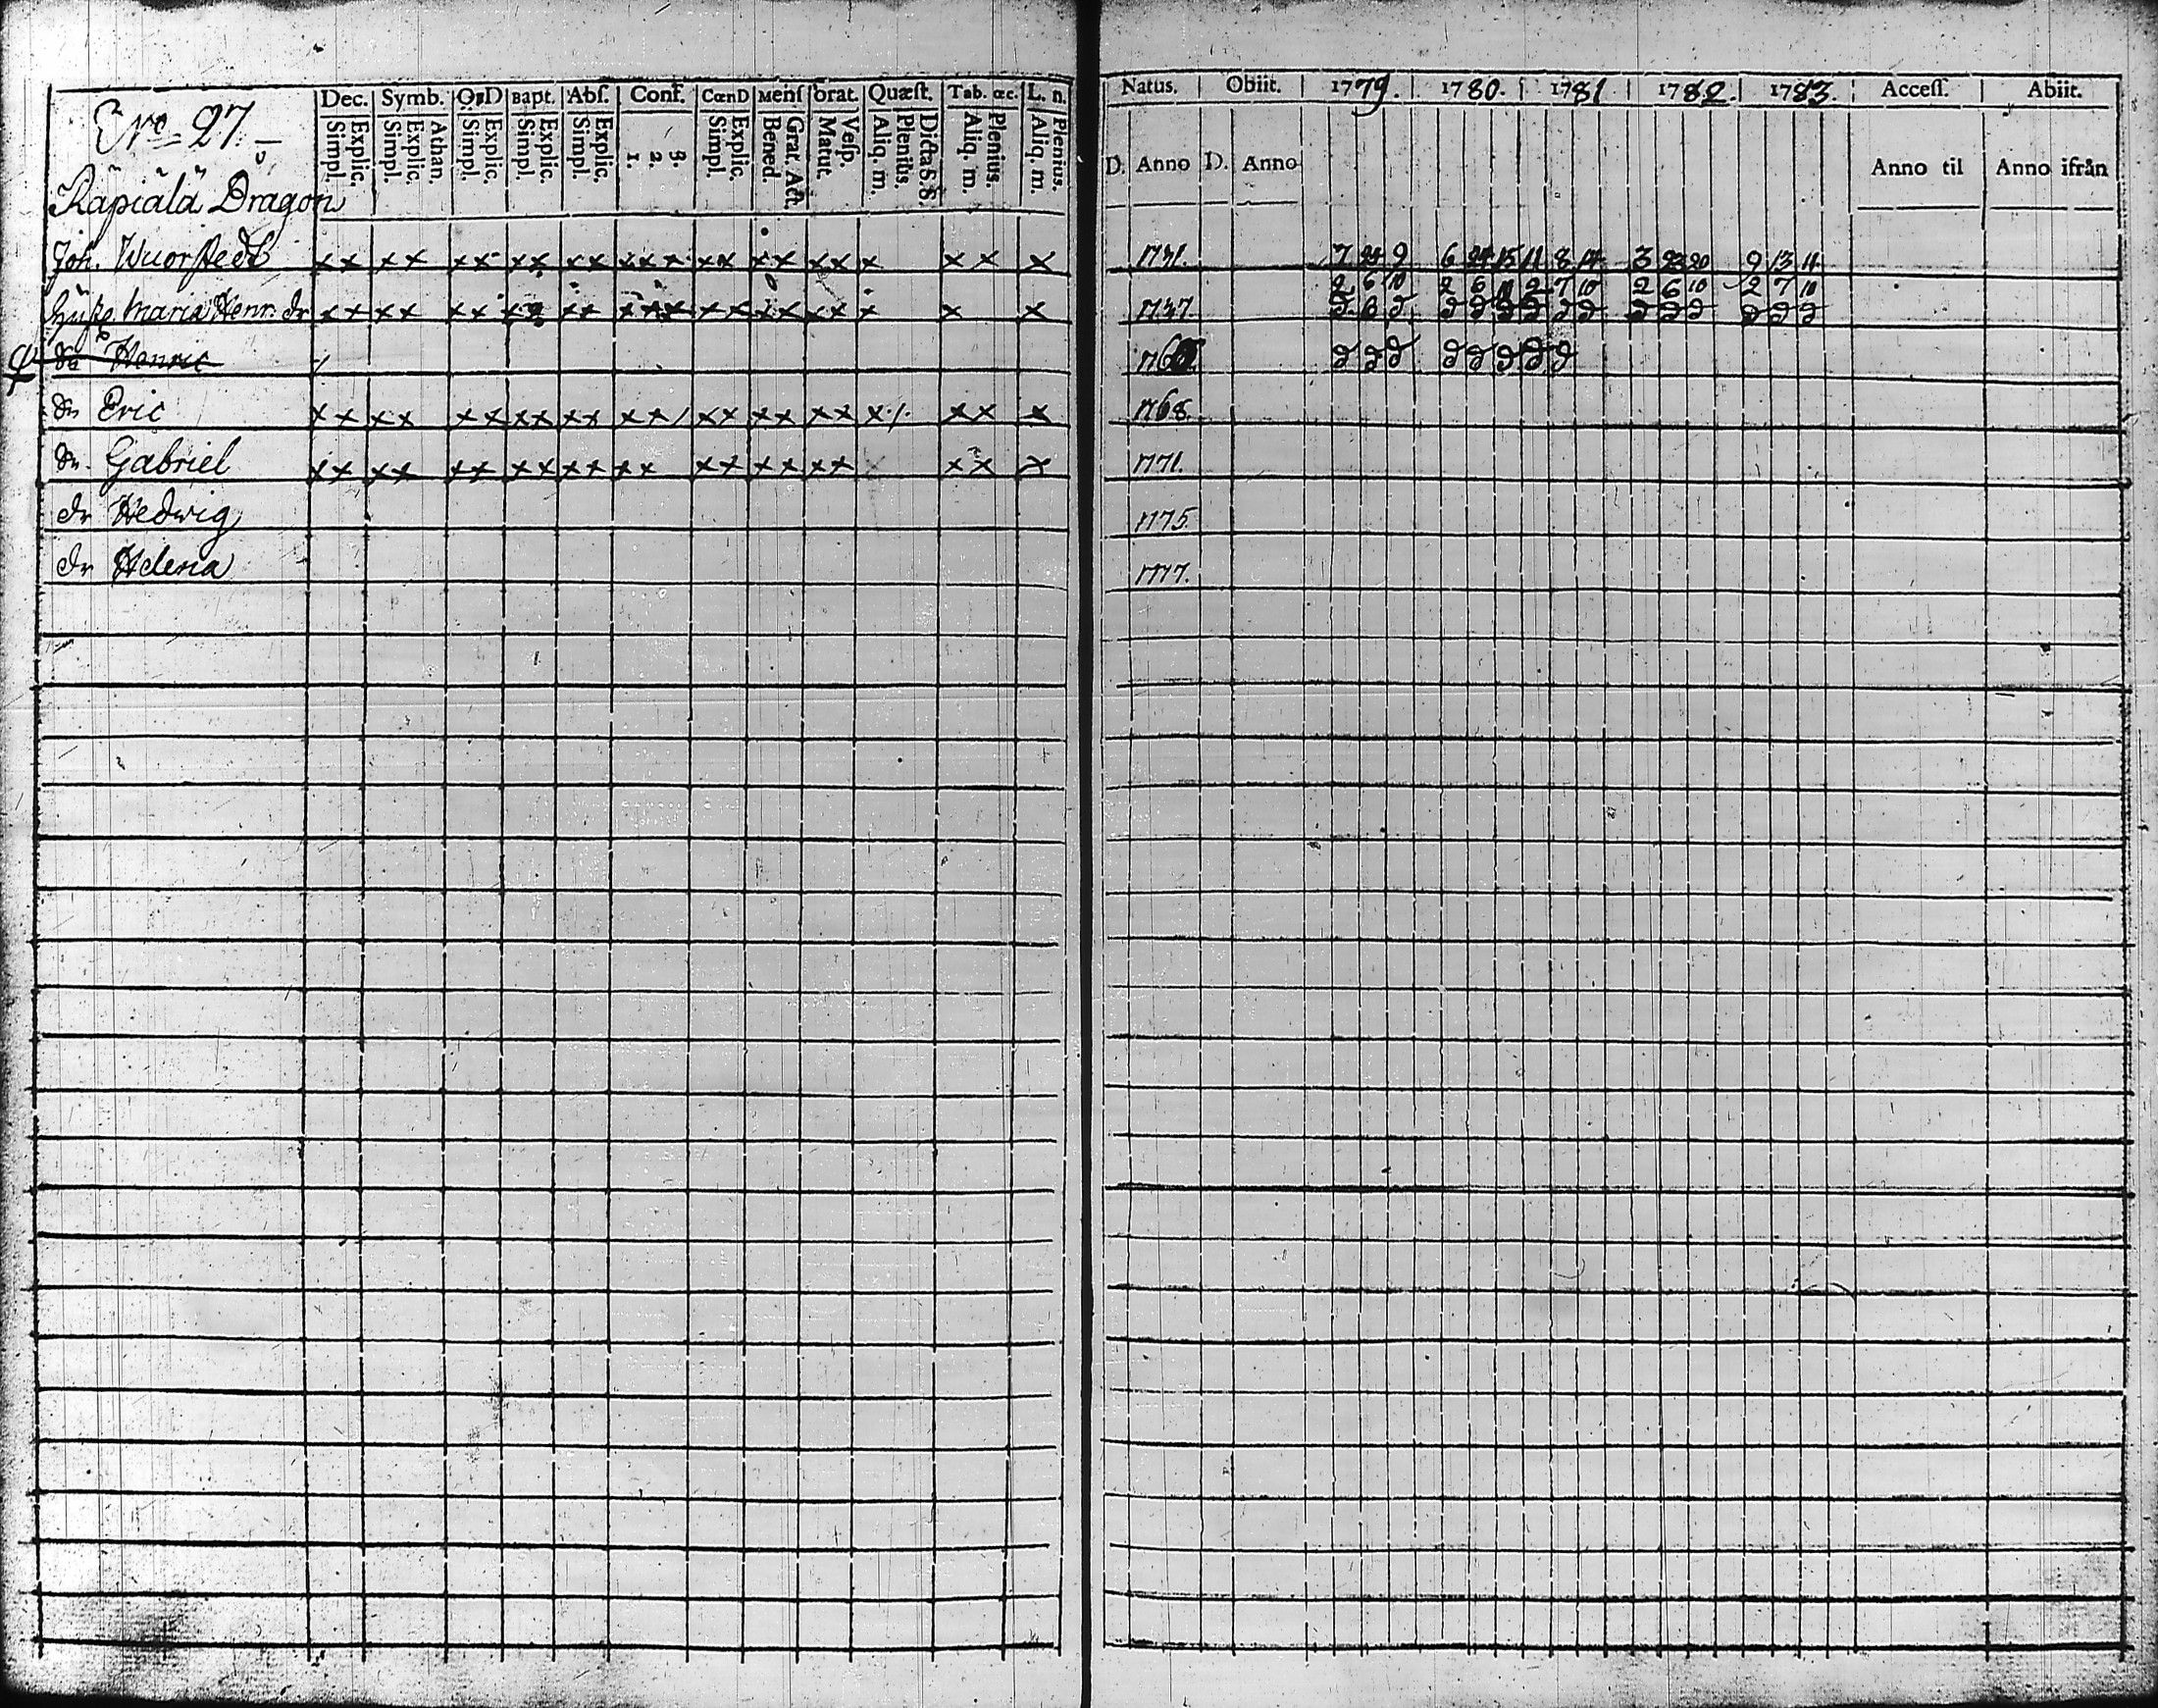 Dec. Symb. O:D Bapt. Abſ. Conf. CœnD Menſ orat. Quæſt. Tab. œc. L. n.
Simpl. Explic. Simpl. Explic. Athan. Simpl. Explic. Simpl. Explic. Simpl. Explic. 1. 2. 3. Simpl. Explic. Bened. Grat. Act. Matut. Veſp. Aliq. m. Pleniùs. Dicta S.S. Aliq. m. Plenius. Aliq. m. Plenius.
Natus. Obiit. 1779. 1780. 1781 1782. 1783. Acceſſ. Abiit.
D. Anno D. Anno Anno til Anno ifrån
No 27.
Rapiala Dragon
Joh. Wuorstedt x x x x x x x x x x x x x x x x x x x x x x 1741. 7 24 9 6 24 15 11 8 14 3 23 20 9 13 11
Hust. Maria Henr. dr x x x x x x x x x x x x x x x x x x x x 1747. 2 6 10 2 6 11 2 7 10 2 6 10 2 7 10
Henric
dr Eric x x x x x x x x x x x x / x x x x x x x / x x x 1768.
Gabriel x x x x x x x x x x x x x x x x x x x x x 1771.
dr Hedwig 1775.
dr Helena 1777.